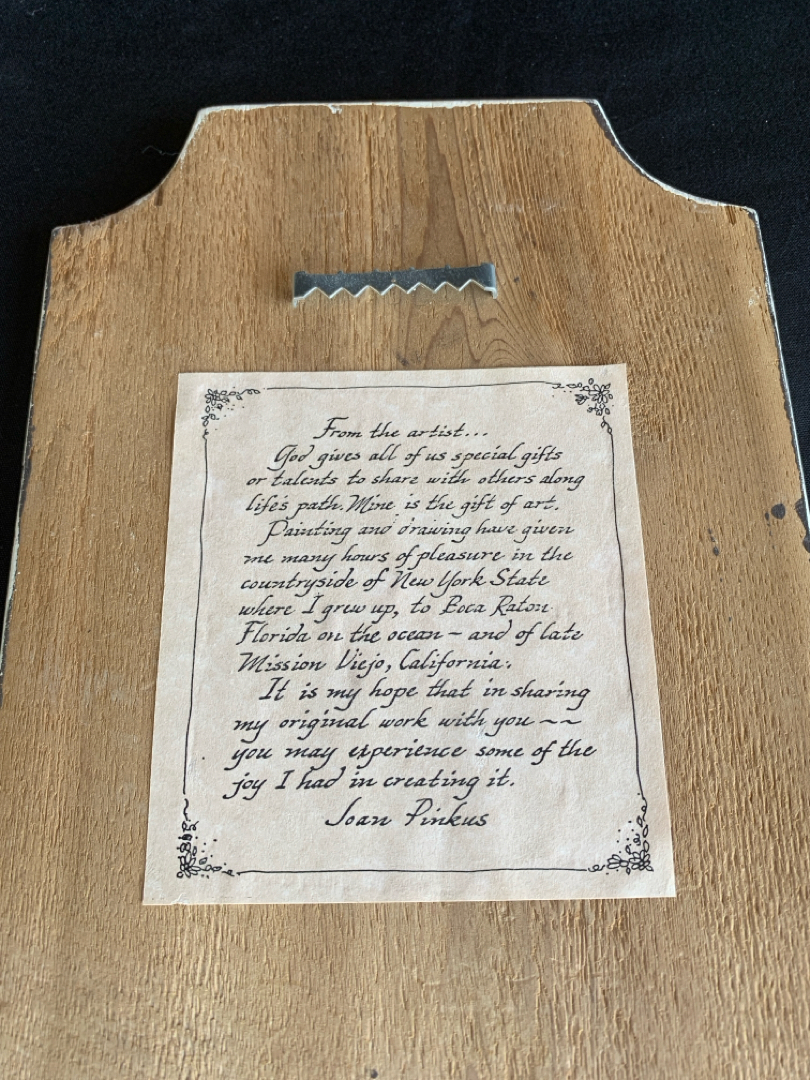 From the artist...
God gives all of us special gifts
or talents to share with others along
life's path. Mine is the gift of art.
Painting and drawing have given
me many hours of pleasure in the
countryside of New York State
where I grew up, to Boca Raton
Florida on the ocean - and of late
Mission Viejo, California.
It is my hope that in sharing
my original work with you ~~
you may experience some of the
joy I had in creating it.
Joan Pinkus